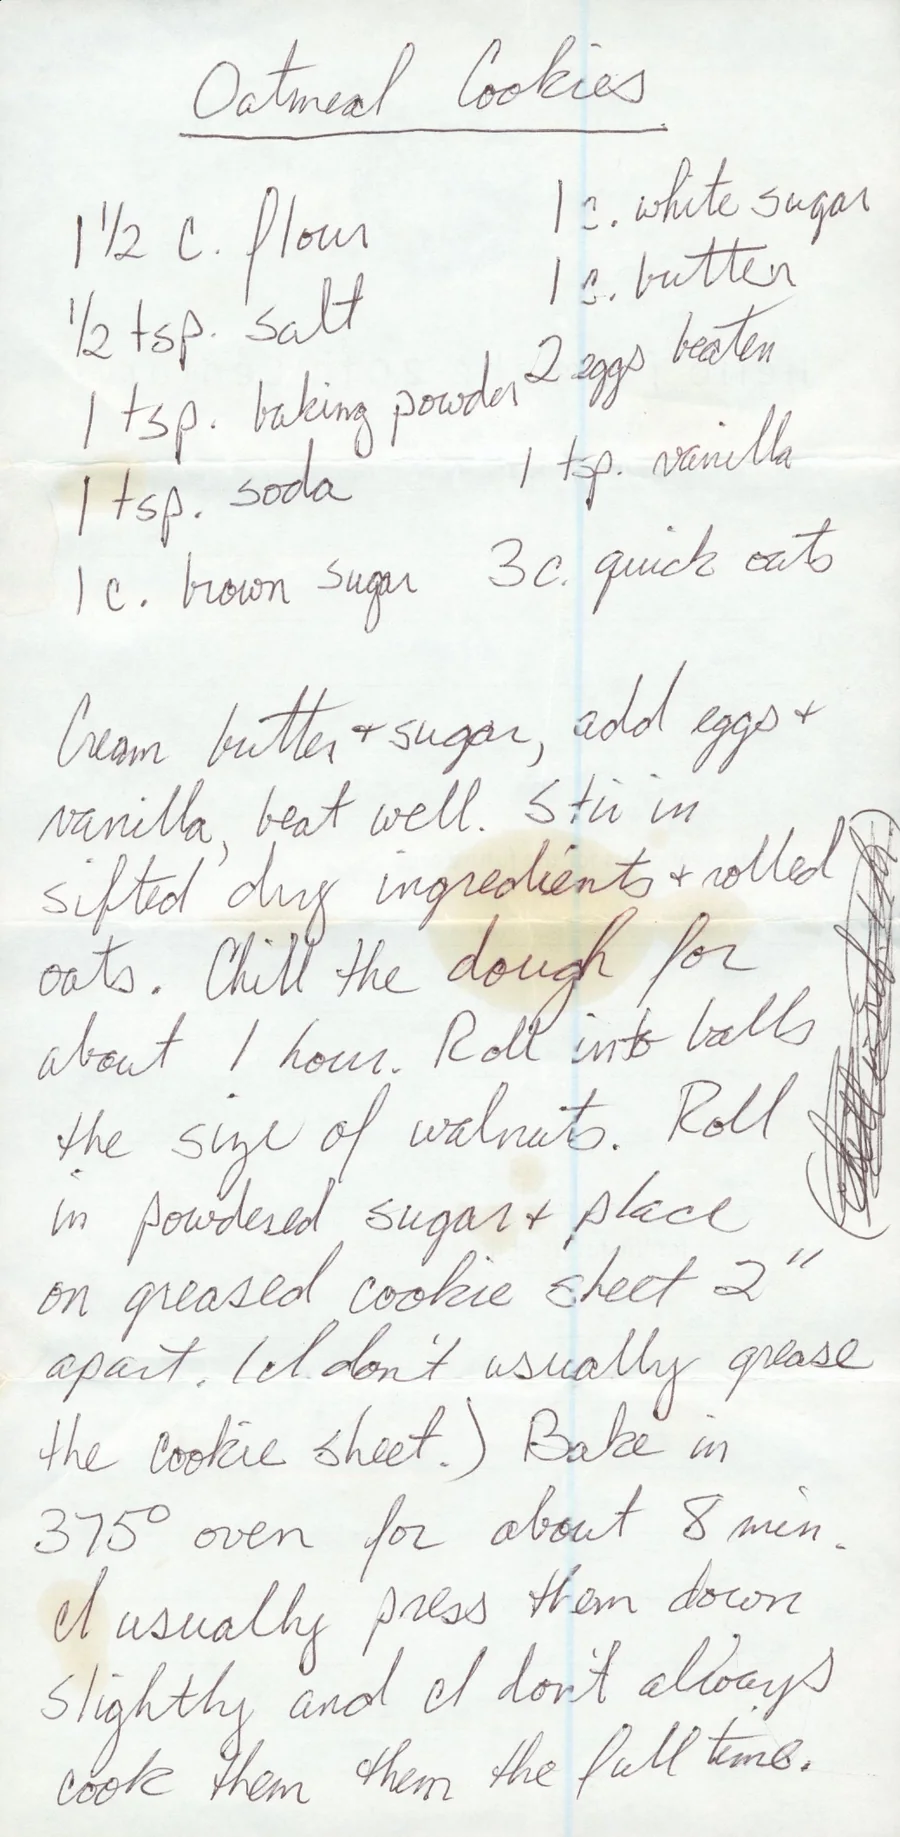 Oatmeal Cookies
1 1/2 c. flour
1/2 tsp. salt
1 tsp. baking powder
1 tsp. soda
1 c. brown sugar
1 c. white sugar
1 c. butter
2 eggs beaten
1 tsp. vanilla
3 c. quick oats
Cream butter + sugar, add eggs +
vanilla, beat well. Stir in
sifted dry ingredients + rolled
oats. Chill the dough for
about 1 hour. Roll into balls
the size of walnuts. Roll
in powdered sugar + place
on greased cookie sheet 2"
apart. (I don't usually grease
the cookie sheet.) Bake in
375° oven for about 8 min.
I usually press them down
slightly and I don't always
cook them them the full time.